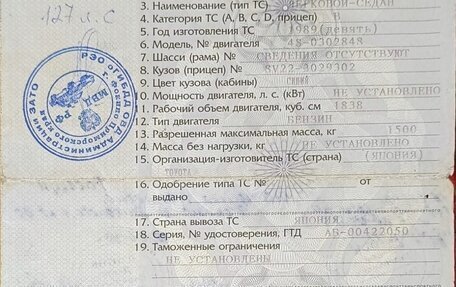 127 л.с
3. Наименование (тип ТС) ЛЕГКОВОЙ-СЕДАН
4. Категория ТС (A, B, C, D, прицеп) B
5. Год изготовления ТС 1989(девять)
6. Модель, № двигателя 4S-0302848
7. Шасси (рама) № СВЕДЕНИЯ ОТСУТСТВУЮТ
8. Кузов (прицеп) № SV22-0029302
9. Цвет кузова (кабины) СИНИЙ
10. Мощность двигателя, л. с. (кВт) НЕ УСТАНОВЛЕНО
11. Рабочий объем двигателя, куб. см 1838
12. Тип двигателя БЕНЗИН
13. Разрешенная максимальная масса, кг 1500
14. Масса без нагрузки, кг НЕ УСТАНОВЛЕНО
15. Организация-изготовитель ТС (страна) (ЯПОНИЯ)
TOYOTA
16. Одобрение типа ТС № от
выдано
17. Страна вывоза ТС ЯПОНИЯ
18. Серия, № удостоверения, ГТД AB-00422050
19. Таможенные ограничения
НЕ УСТАНОВЛЕНЫ
РЭО ОГИБДД ОВД Администрации ЗАТО
г. Фокино Приморского края
МВД РФ